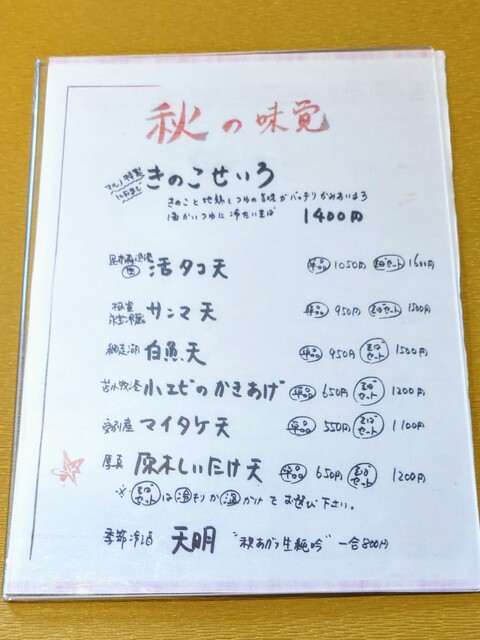 秋の味覚
きのこせいろ
きのこと地鶏とつゆの旨味がバッチリかみあいます
温かいつゆに冷たいそば 1400円
活タコ天 単品 1050円 そばセット 1600円
根室 サンマ天 単品 950円 そばセット 1500円
網走湖 白魚天 単品 950円 そばセット 1500円
苫小牧港 小エビのかきあげ 単品 650円 そばセット 1200円
愛別産 マイタケ天 単品 550円 そばセット 1100円
厚真 原木しいたけ天 単品 650円 そばセット 1200円
※そばセットは冷もりか温かけをお選び下さい。
季節冷酒 天明 "秋あがり生純吟" 一合800円